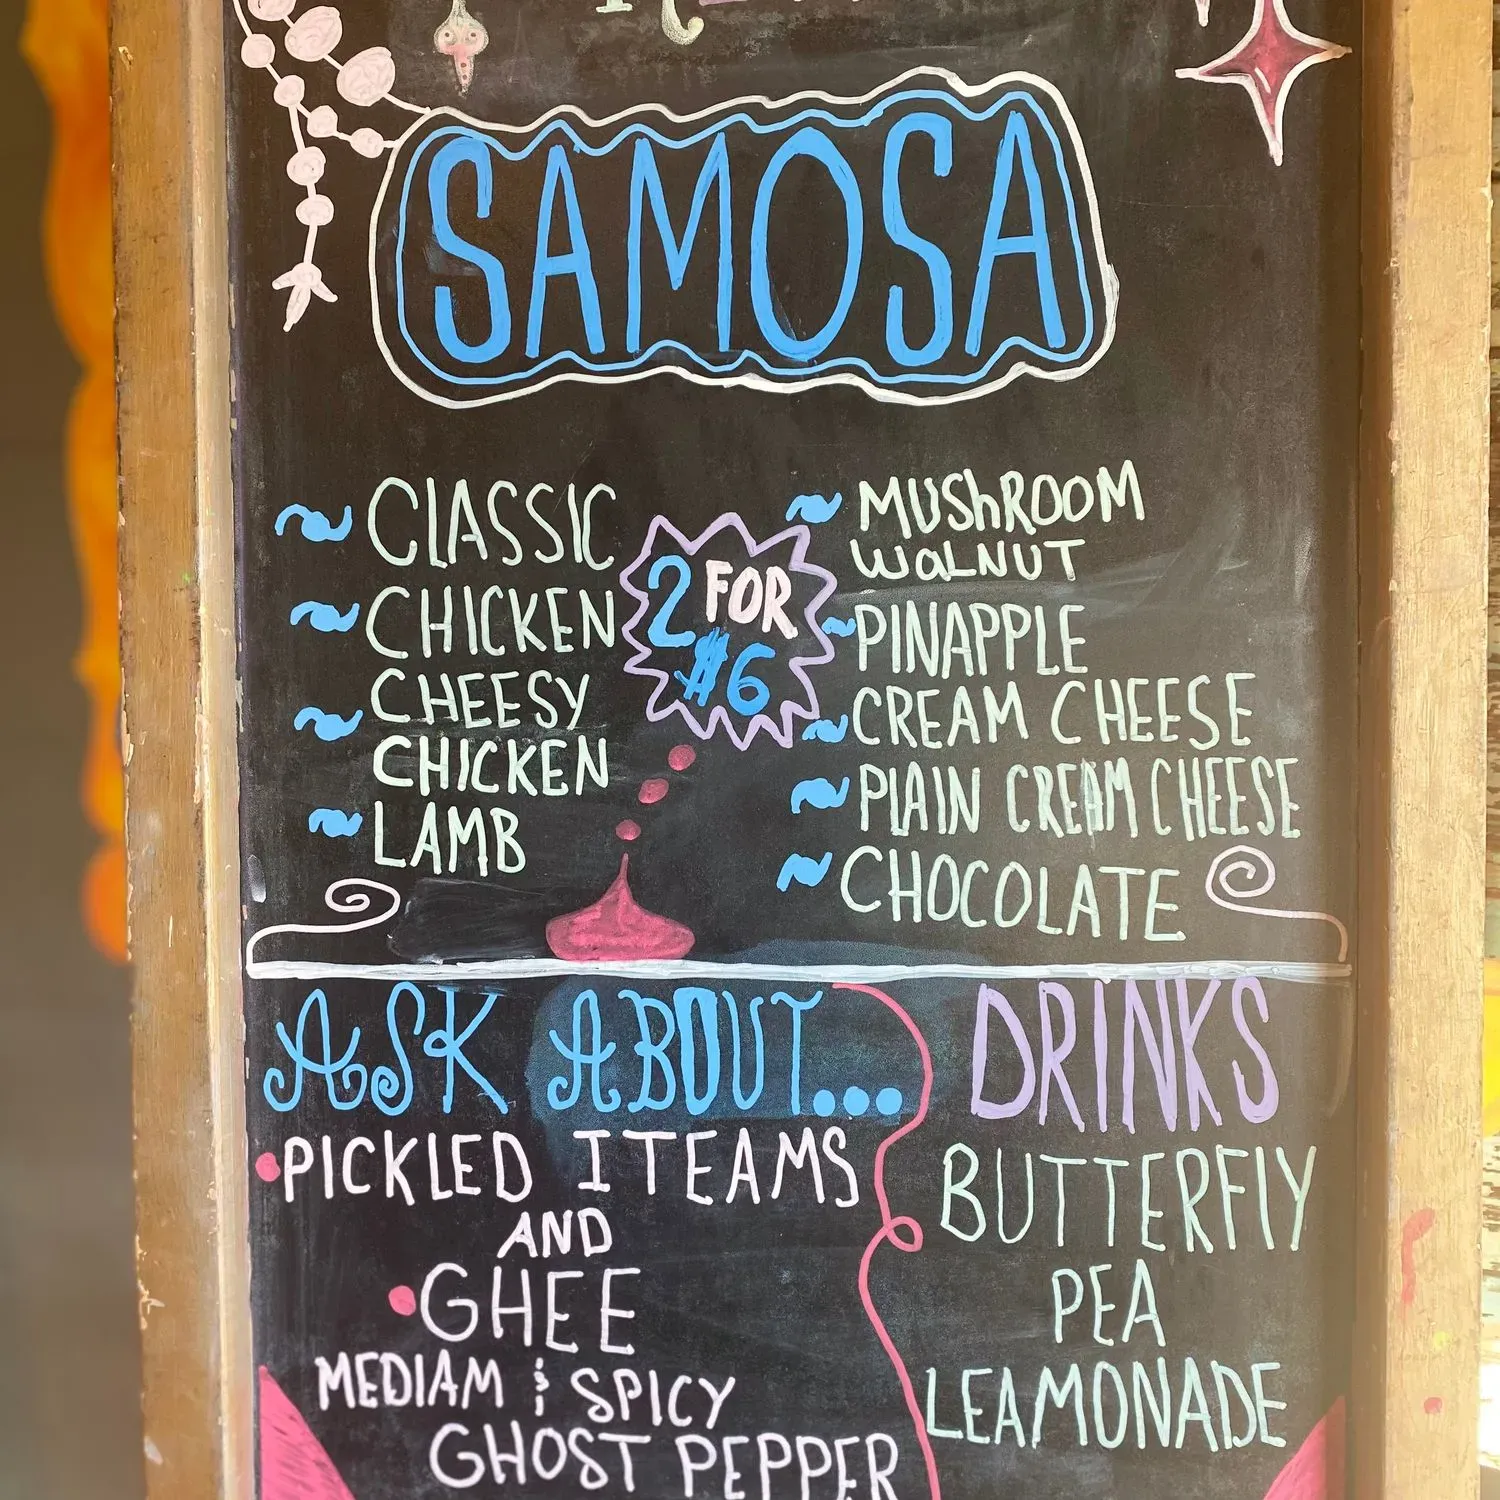 SAMOSA
~ CLASSIC
~ CHICKEN
~ CHEESY
CHICKEN
~ LAMB
2 FOR
$6
~ MUShROOM
WaLNUT
~ PINAPPLE
~ CREAM CHEESE
~ PLAIN CREAM CHEESE
~ CHOCOLATE
ASK ABOUT...
• PICKLED ITEAMS
AND
• GHEE
MEDIAM & SPICY
GHOST PEPPER
DRINKS
BUTTERFLY
PEA
LEAMONADE